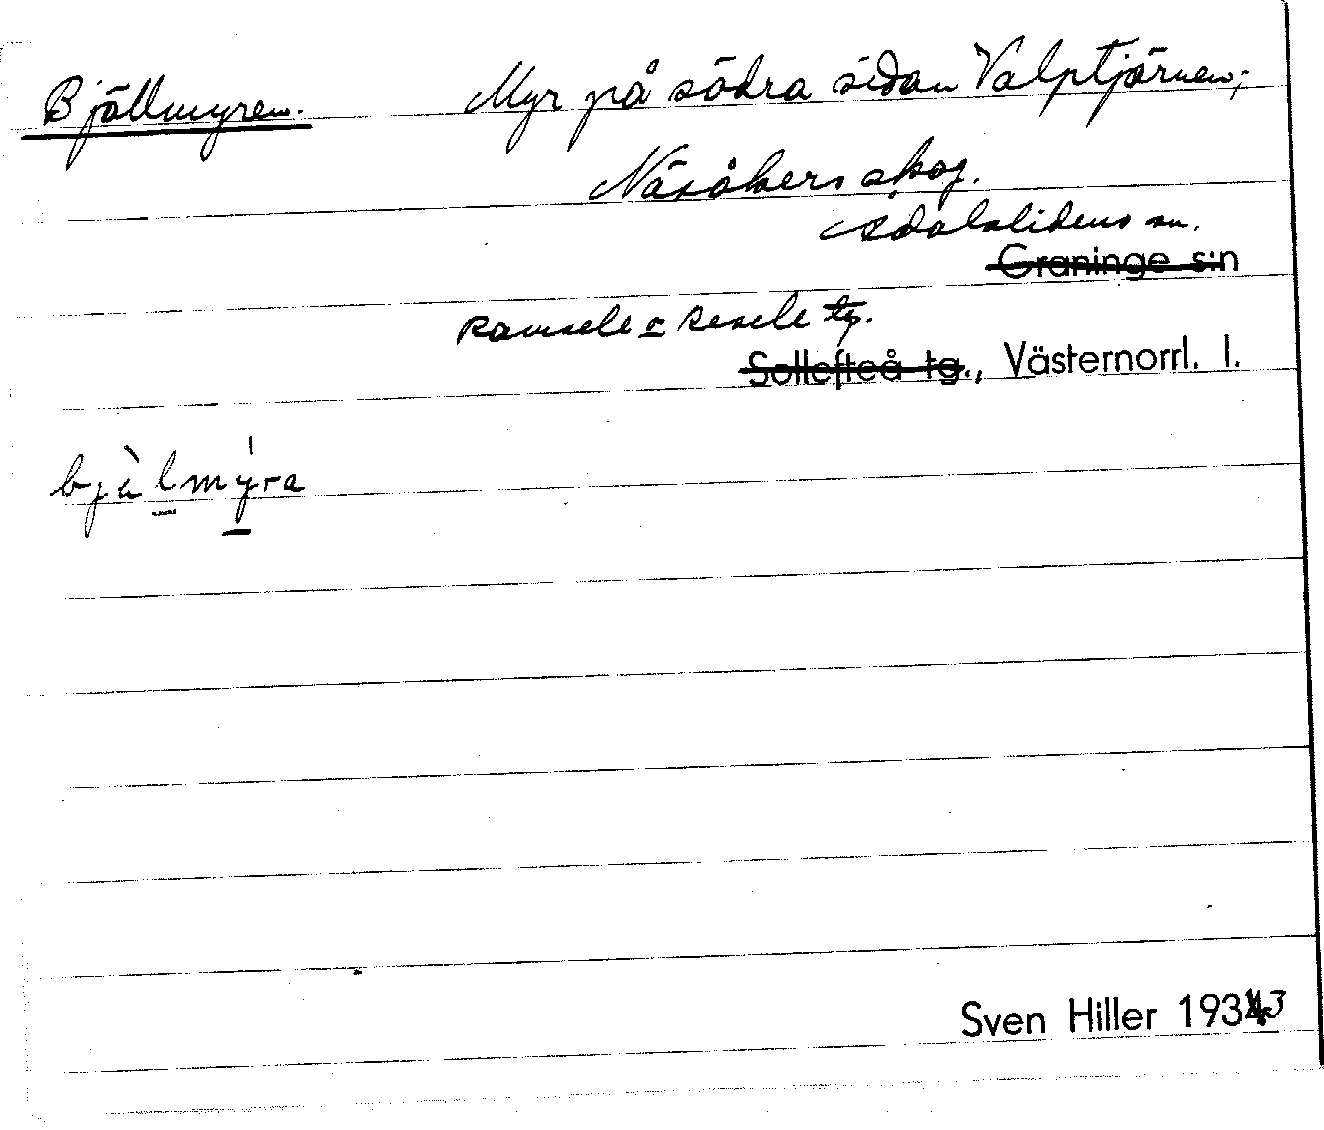 Bjällmyren. Myr på södra sidan Valptjärnen;
Näsåkers skog.
Ådalslidens sn.
Graninge s:n
Ramsele o Resele tg.
Sollefteå tg., Västernorrl. l.
bjàlmýra
Sven Hiller 193